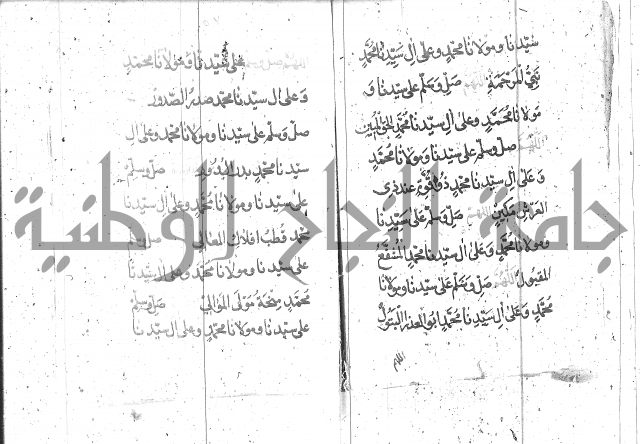 سيدنا ومولانا محمد وعلى ال سيدنا محمد
نبي المرحمة اللهم صل وسلم على سيدنا و
مولانا محمد وعلى ال سيدنا محمد
اللهم صل وسلم على سيدنا ومولانا محمد
وعلى ال سيدنا محمد ذي قوة عند ذي
العرش مكين اللهم صل وسلم على سيدنا
ومولانا محمد وعلى ال سيدنا محمد المشفع
المقبول اللهم صل وسلم على سيدنا ومولانا
محمد وعلى ال سيدنا محمد ابو العذراء البتول
اللهم
اللهم صل وسلم على سيدنا ومولانا محمد
وعلى ال سيدنا محمد صدر الصدور
صل وسلم على سيدنا ومولانا محمد وعلى ال
سيدنا محمد بدر البدور صل وسلم
على سيدنا ومولانا محمد وعلى ال سيدنا
محمد قطب افلاك المعالي صل وسلم
على سيدنا ومولانا محمد وعلى ال سيدنا
محمد منحة مولى الموالي صل وسلم
على سيدنا ومولانا محمد وعلى ال سيدنا
جامعة النجاح الوطنية